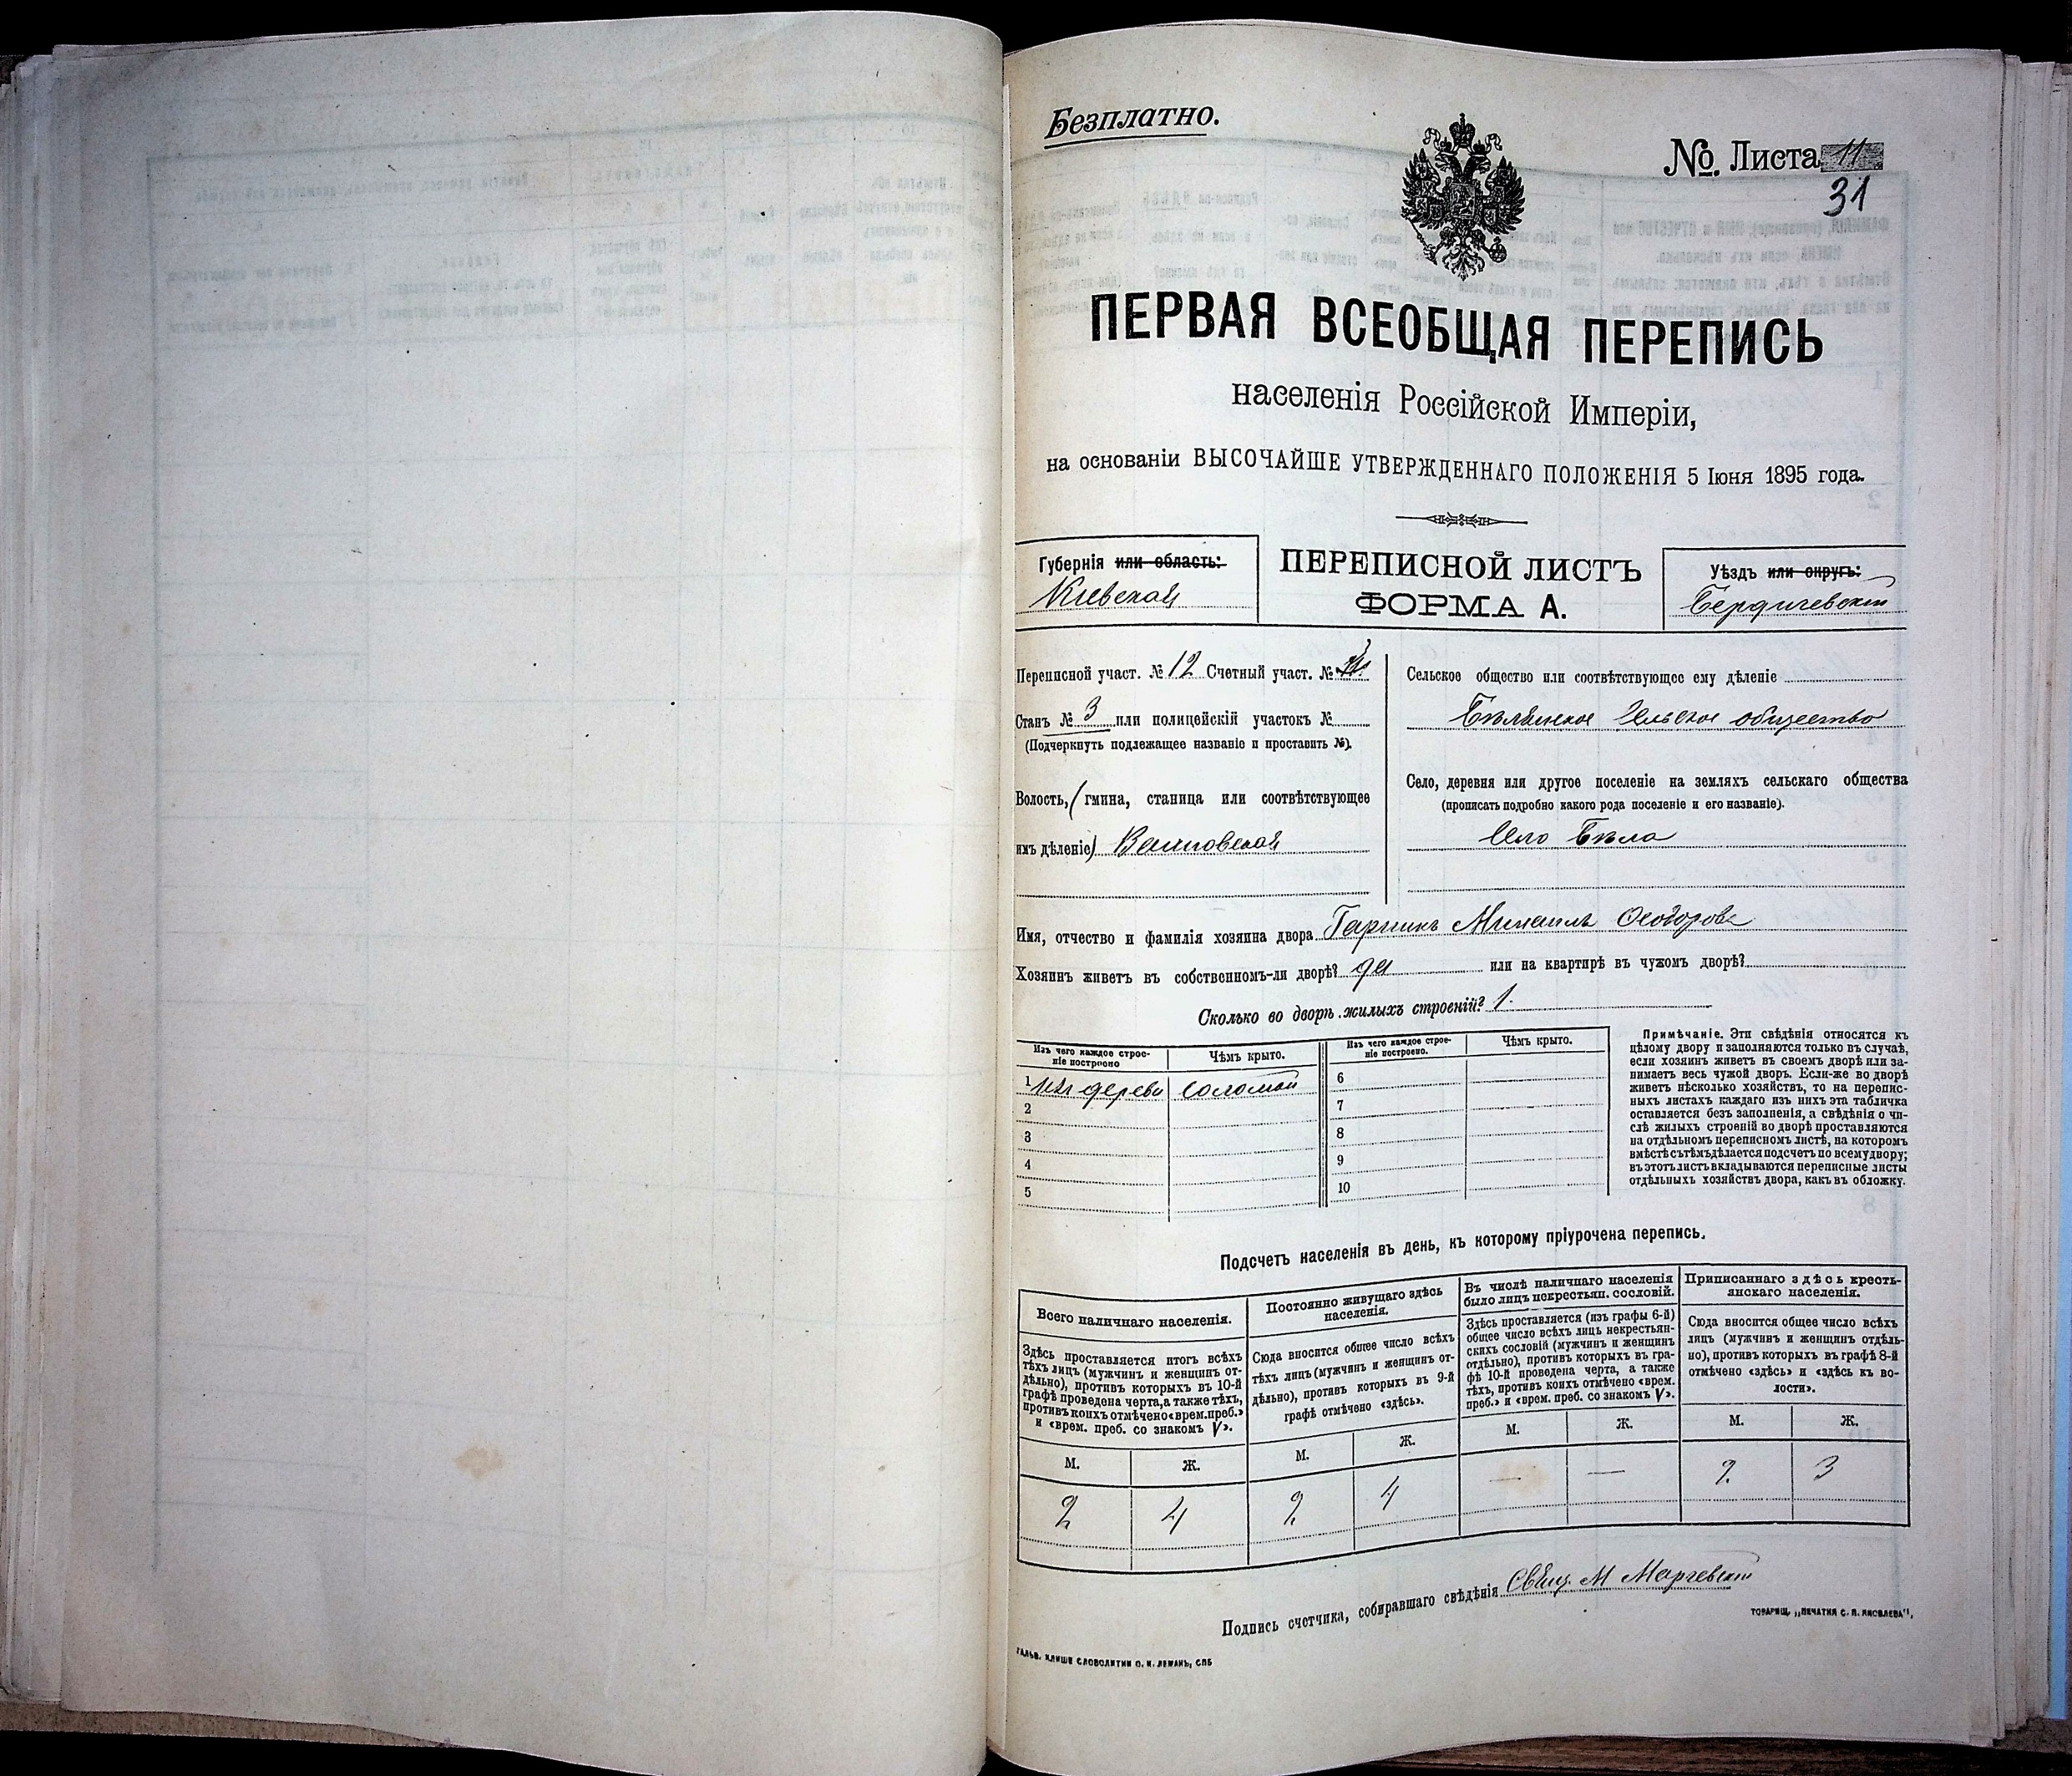 Безплатно.
№ Листа 11
31
ПЕРВАЯ ВСЕОБЩАЯ ПЕРЕПИСЬ
населенія Россійской Имперіи,
на основаніи ВЫСОЧАЙШЕ УТВЕРЖДЕННАГО ПОЛОЖЕНІЯ 5 Іюня 1895 года.
Губернія или область:
Кіевская
ПЕРЕПИСНОЙ ЛИСТЪ
ФОРМА А.
Уѣздъ или округъ:
Бердичевскій
Переписной участ. № 12 Счетный участ. №
Станъ № 3 или полицейскій участокъ №
(Подчеркнуть подлежащее названіе и проставить №).
Волость, (гмина, станица или соотвѣтствующее
имъ дѣленіе)
Сельское общество или соотвѣтствующее ему дѣленіе
сельское общество
Село, деревня или другое поселеніе на земляхъ сельскаго общества
(прописать подробно какого рода поселеніе и его названіе).
Село Бѣла
Имя, отчество и фамилія хозяина двора Михаилъ Ѳеодоровъ
Хозяинъ живетъ въ собственномъ-ли дворѣ? да или на квартирѣ въ чужомъ дворѣ?
Сколько во дворѣ жилыхъ строеній? 1.
Изъ чего каждое строе-
ніе построено
Чѣмъ крыто.
1 изъ дерева соломой
2
3
4
5
Изъ чего каждое строе-
ніе построено.
Чѣмъ крыто.
6
7
8
9
10
Примѣчаніе. Эти свѣдѣнія относятся къ
цѣлому двору и заполняются только въ случаѣ,
если хозяинъ живетъ въ своемъ дворѣ или за-
нимаетъ весь чужой дворъ. Если-же во дворѣ
живетъ нѣсколько хозяйствъ, то на перепис-
ныхъ листахъ каждаго изъ нихъ эта табличка
оставляется безъ заполненія, а свѣдѣнія о чи-
слѣ жилыхъ строеній во дворѣ проставляются
на отдѣльномъ переписномъ листѣ, на которомъ
вмѣстѣ съ тѣмъ дѣлается подсчетъ по всему двору;
въ этотъ листъ вкладываются переписные листы
отдѣльныхъ хозяйствъ двора, какъ въ обложку.
Подсчетъ населенія въ день, къ которому пріурочена перепись.
Всего наличнаго населенія.
Здѣсь проставляется итогъ всѣхъ
тѣхъ лицъ (мужчинъ и женщинъ от-
дѣльно), противъ которыхъ въ 10-й
графѣ проведена черта, а также тѣхъ,
противъ коихъ отмѣчено «врем. преб.»
и «врем. преб. со знакомъ V».
М. Ж.
2 4
Постоянно живущаго здѣсь
населенія.
Сюда вносится общее число всѣхъ
тѣхъ лицъ (мужчинъ и женщинъ от-
дѣльно), противъ которыхъ въ 9-й
графѣ отмѣчено «здѣсь».
М. Ж.
2 4
Въ числѣ наличнаго населенія
было лицъ некрестьян. сословій.
Здѣсь проставляется (изъ графы 6-й)
общее число всѣхъ лицъ некрестьян-
скихъ сословій (мужчинъ и женщинъ
отдѣльно), противъ которыхъ въ гра-
фѣ 10-й проведена черта, а также
тѣхъ, противъ коихъ отмѣчено «врем.
преб.» и «врем. преб. со знакомъ V».
М. Ж.
— —
Приписаннаго здѣсь кресть-
янскаго населенія.
Сюда вносится общее число всѣхъ
лицъ (мужчинъ и женщинъ отдѣль-
но), противъ которыхъ въ графѣ 8-й
отмѣчено «здѣсь» и «здѣсь къ во-
лости».
М. Ж.
2 3
Подпись счетчика, собиравшаго свѣдѣнія Свящ. М
ТОВАРИЩ. „ПЕЧАТНЯ С. П. ЯКОВЛЕВА",
ГАЛЬВ. КЛИШЕ СЛОВОЛИТНИ О. И. ЛЕМАНЪ, СПБ